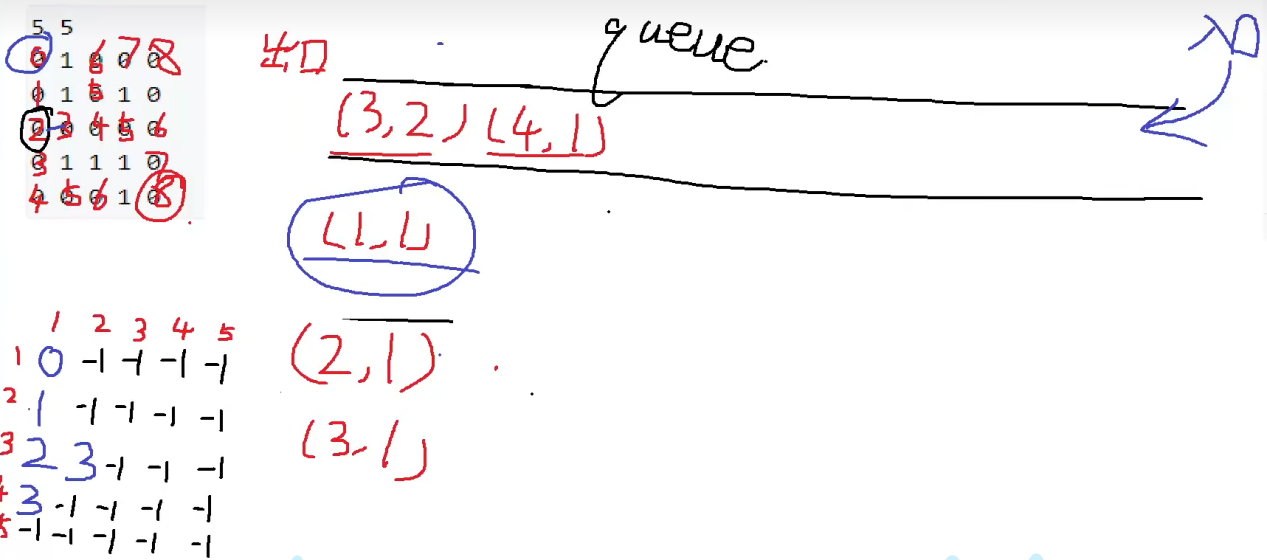 5 5
0 1 0 0 0
0 1 0 1 0
0 0 0 0 0
0 1 1 1 0
0 0 0 1 0
0 6 7 8
1 5
2 3 4 5 6
3 7
4 5 6 8
出口
queue
入口
(3,2) (4,1)
(1,1)
(2,1)
(3,1)
1 2 3 4 5
1 0 -1 -1 -1 -1
2 1 -1 -1 -1 -1
3 2 3 -1 -1 -1
4 3 -1 -1 -1 -1
5 -1 -1 -1 -1 -1